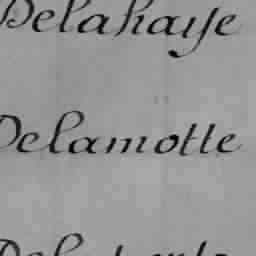 Delahaye
Delamotte